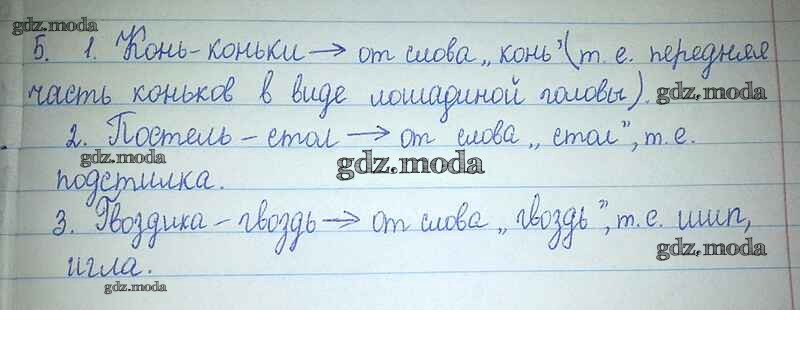 gdz.moda
Б. 1. Конь-коньки → от слова „конь” (т.е. передняя
часть коньков в виде лошадиной головы). gdz.moda
2. Постель – стол → от слова „стол”, т.е.
gdz.moda
gdz.moda
подстилка.
3. Гвоздика – гвоздь → от слова „гвоздь”, т.е. шип,
gdz.moda
игла.
gdz.moda